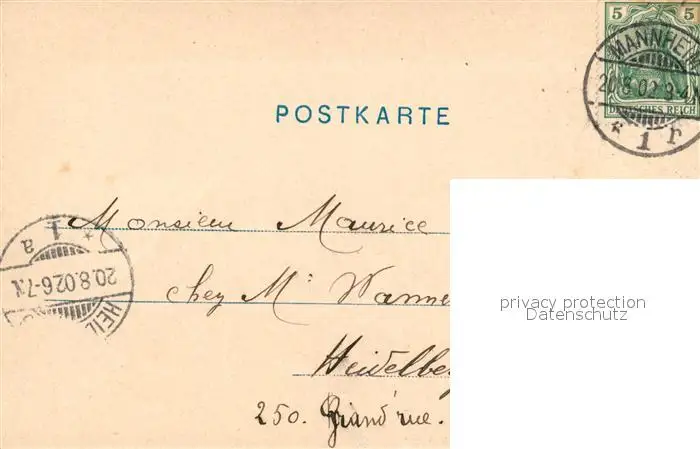 5 5
MANNHEIM
20.8.02.3-4N
DEUTSCHES REICH
* 1 r
POSTKARTE
Monsieur Maurice
1.
a
20.8.02.6-7N
HEI
chez Mr Wanne
Heidelbe
250. Grand'rue.
privacy protection
Datenschutz